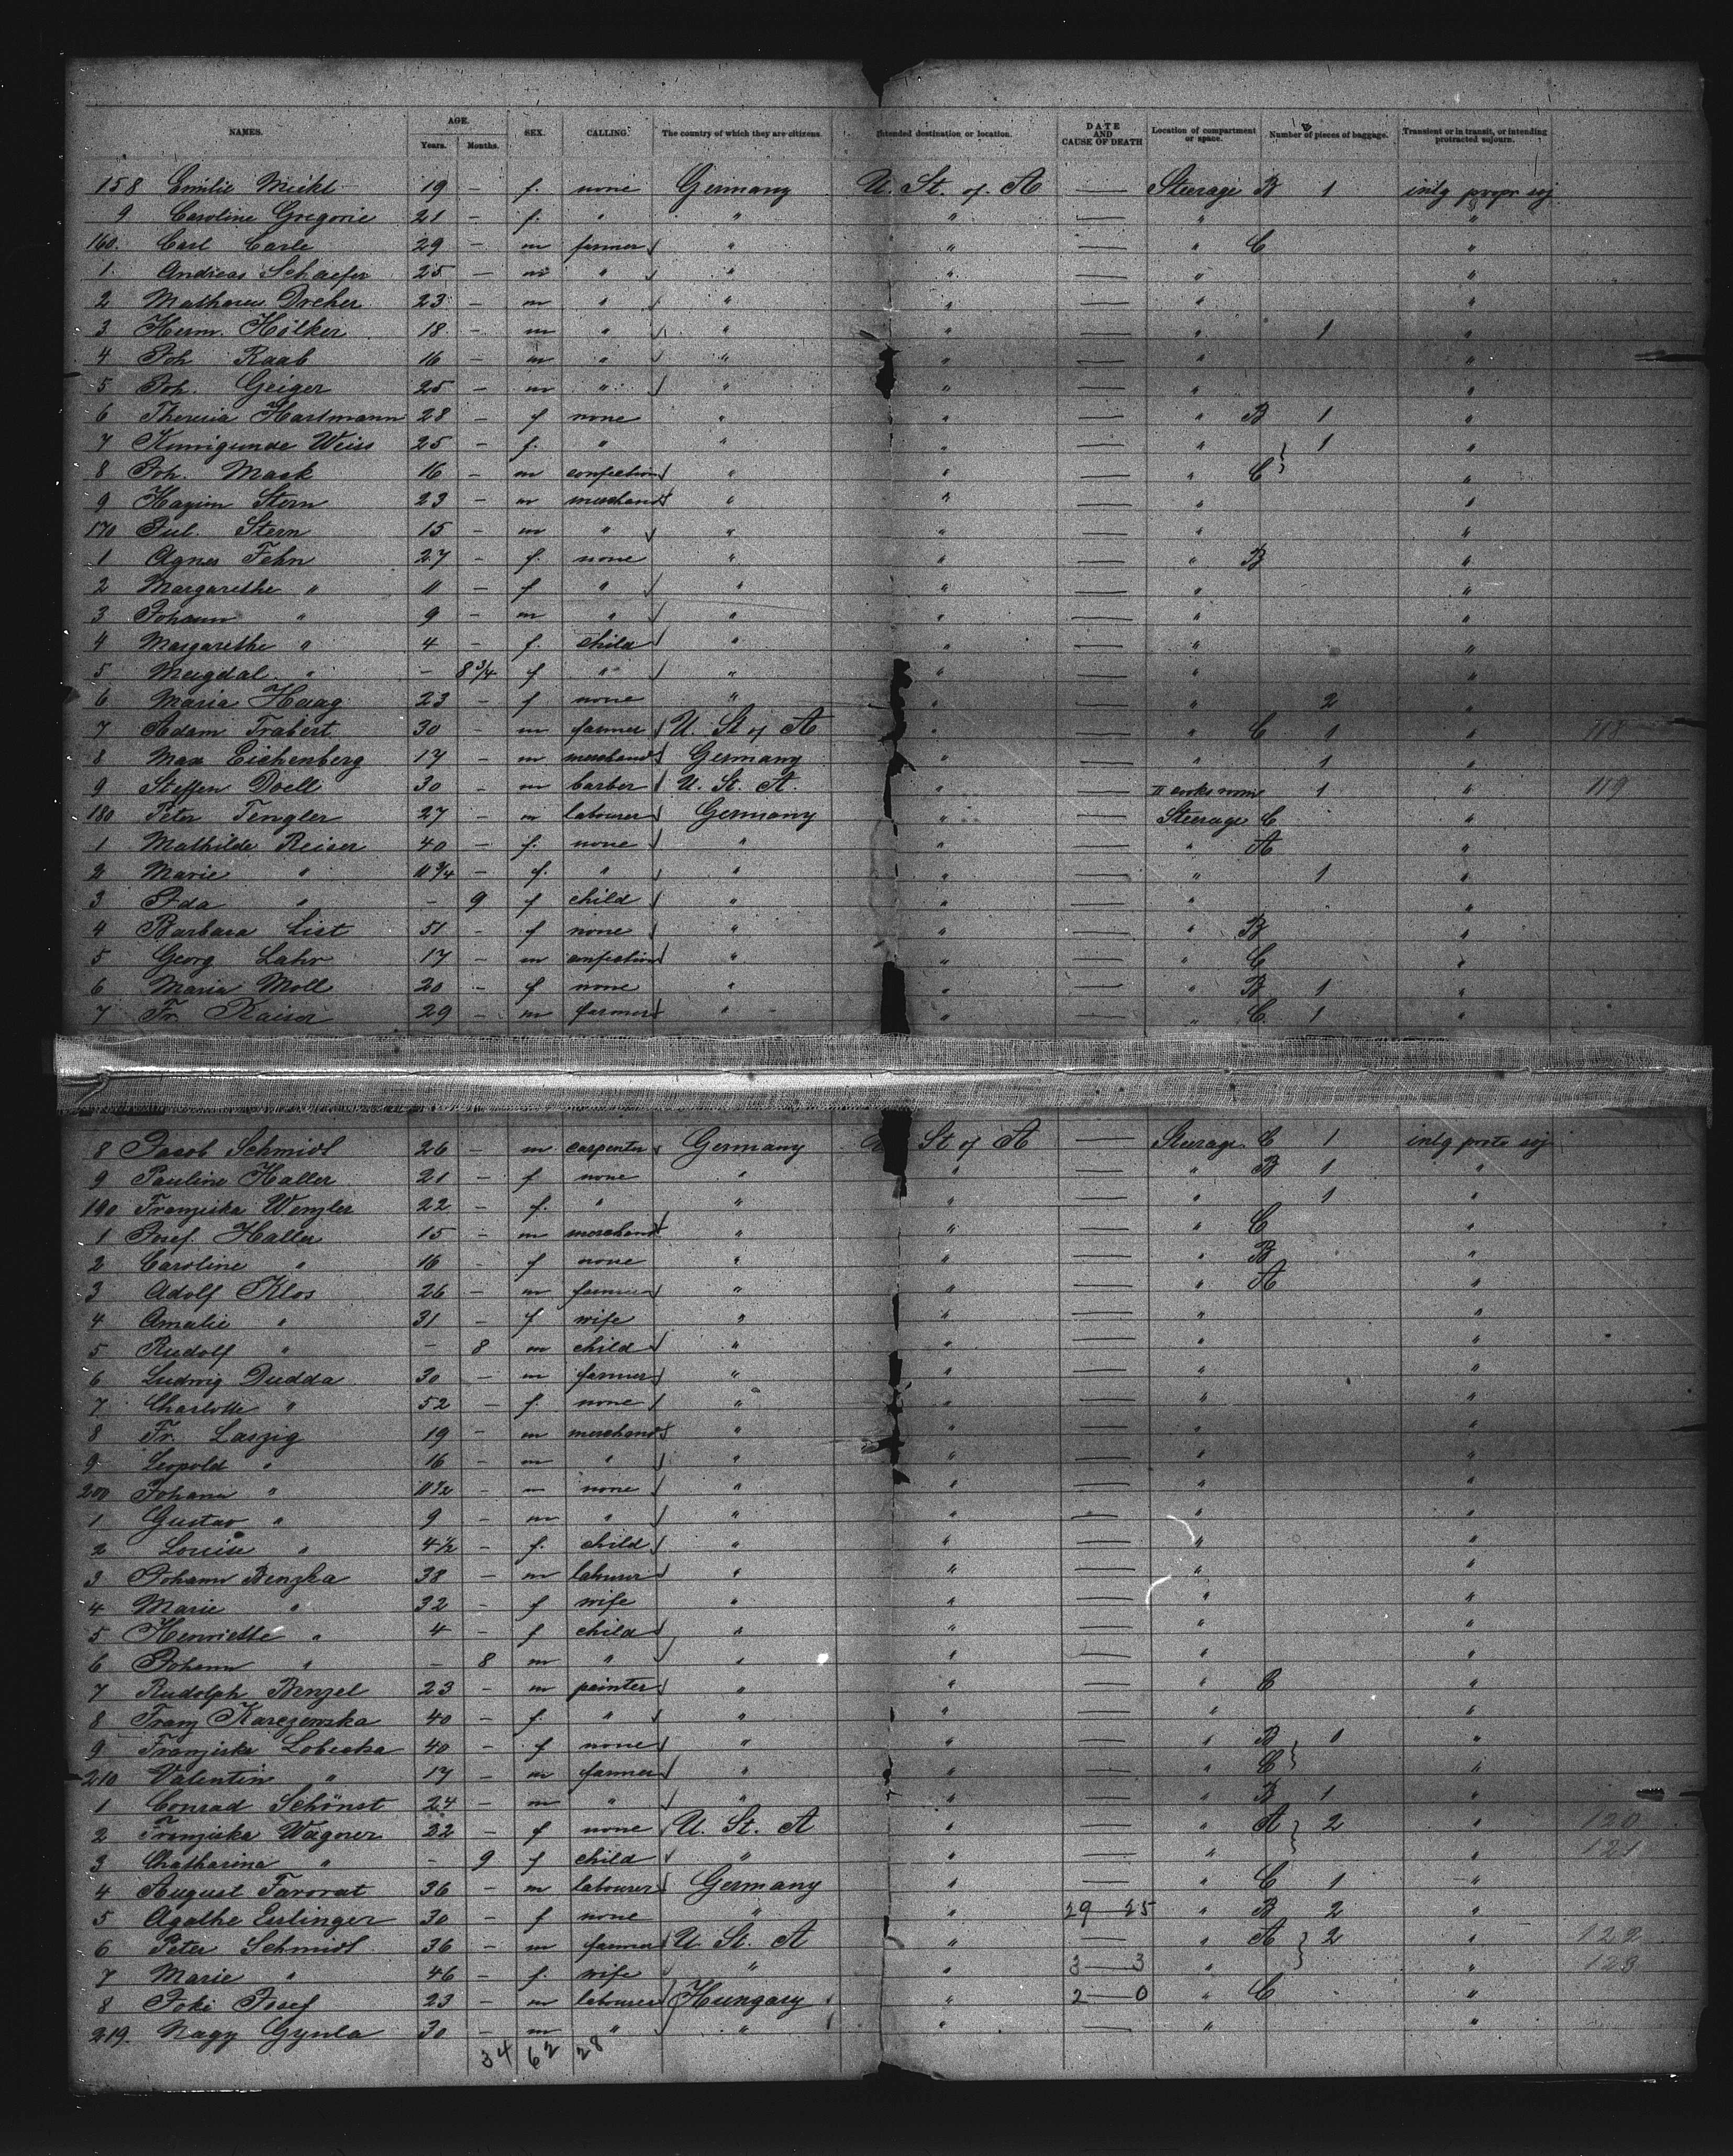 NAMES. AGE. Years. Months. SEX. CALLING. The country of which they are citizens. Intended destination or location. DATE AND CAUSE OF DEATH Location of compartment or space. Number of pieces of baggage. Transient or in transit, or intending protracted sojourn.
158 Emilie Mickl 19 – f. none Germany U. St. of A — Steerage B 1 intg propr soj
9 Caroline Gregorie 21 – f. " " " — " "
160. Carl Carle 29 – m farmer " " — " C "
1. Andreas Schaefer 25 – m " " " — " "
2 Drcher 23 – m " " " — " "
3 Herm. Hölker 18 – m " " " — " 1 "
4 Joh Raab 16 – m " " " — " "
5 Joh. Geiger 25 – m " " " — " "
6 Theresia Hartmann 28 – f none " " — " B 1 "
7 Kunigunde Weiss 25 – f. " " " — " 1 "
8 Joh. Mack 16 – m confection " " — " C "
9 Stern 23 – m merchant " " — " "
170 Jul. Stern 15 – m " " " — " "
1 Agnes Fehn 27 – f. none " " — " B "
2 Margarethe " 11 – f " " " — " "
3 Johann " 9 – m " " " — " "
4 Margarethe " 4 – f. child " " — " "
5 Magdal. " – 8 3/4 f " " " — " "
6 Maria Haag 23 – f none " " — " 2 "
7 Adam Trabert 30 – m farmer U. St of A " — " C 1 " 118
8 Max Eichenberg 17 – m merchant Germany " — " 1 "
9 Steffen Doell 30 – m barber U. St. A. " — II cooks room 1 " 119
180 Peter Tengler 27 – m labourer Germany " — Steerage C "
1 Mathilde Reiser 40 – f. none " " — " A "
2 Marie " 11 3/4 – f. " " " — " 1 "
3 Ida " – 9 f child " " — " "
4 Barbara List 51 – f none " " — " B "
5 Georg Lahr 17 – m confection " " — " C "
6 Maria Moll 20 – f none " " — " B 1 "
7 Fr. Kaiser 29 – m farmer " " — " C 1 "
8 Jacob Schmidt 26 – m carpenter Germany U St of A — Steerage C 1 intg protr soj
9 Pauline Haller 21 – f none " " — " B 1 "
190 Franziska Wenzler 22 – f. " " " — " 1 "
1 Josef Haller 15 – m merchant " " — " C "
2 Caroline " 16 – f none " " — " B "
3 Adolf Klos 26 – m farmer " " — " A "
4 Amalie " 31 – f wife " " — " "
5 Rudolf " – 8 m child " " — " "
6 Ludwig Dudda 30 – m farmer " " — " "
7 Charlotte " 52 – f none " " — " "
8 Fr. Laszig 19 – m merchant " " — " "
9 Leopold " 16 – m " " " — " "
200 Johann " 11 1/2 – m none " " — " "
1 Gustav " 9 – m " " " — " "
2 Louise " 4 1/2 – f. child " " — " "
3 Johann Benzka 38 – m labourer " " — " "
4 Marie " 32 – f wife " " — " "
5 Henriette " 4 – f child " " — " "
6 Johann " – 8 m " " " — " "
7 Rudolph Benzel 23 – m painter " " — " C "
8 Franz Karczewska 40 – f. " " " — " "
9 Franziska Lobecka 40 – f none " " — " B 1 "
210 Valentin " 17 – m farmer " " — " C "
1 Conrad Schönst 24 – m " " " — " B 1 "
2 Franziska Wagner 22 – f none U. St. A " — " A 2 " 120
3 Chatharina " – 9 f child " " — " " 121
4 August Favorat 36 – m labourer Germany " — " C 1 "
5 Agathe Eislinger 30 – f none " " 29—25 " B 2 "
6 Peter Schmidt 36 – m farmer U. St. A " — " A 2 " 122
7 Marie " 46 – f. wife " " 3—3 " " 123
8 Foki Josef 23 – m labourer Hungary " 2—0 " C "
219. Nagy Gyula 30 – m " " " " "
34 62 28